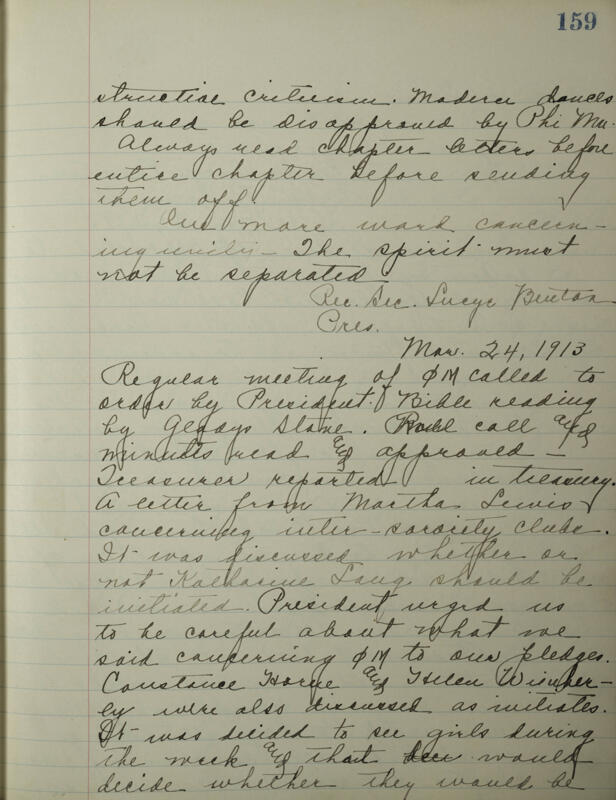 159
structive criticism. Modern dances
should be disapproved by Phi Mu.
Always read chapter letters before
entire chapter before sending
them off.
One more word concern-
ing unity – The spirit must
not be separated
Rec. Sec. Lucye Benton
Pres.
Mar. 24, 1913
Regular meeting of ΦM called to
order by President. Bible reading
by Gladys Slone. Roll call and
minutes read and approved –
Treasurer reported in treasury.
A letter from Martha Lewis
concerning inter-sorority clubs.
It was discussed whether or
not Katharine Lang should be
initiated. President urged us
to be careful about what we
said concerning ΦM to our pledges.
Constance Horne and Helen Wimber-
ly were also discussed as initiates.
It was decided to see girls during
the week and that would
decide whether they would be